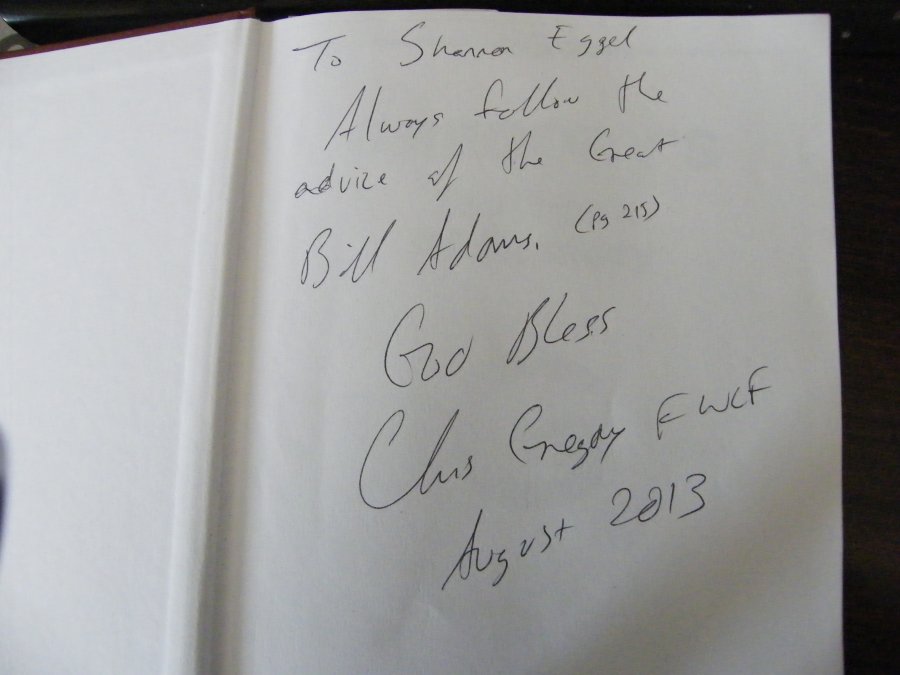 To Shannon Eggel
Always follow the
advice of the Great
Bill Adams. (pg 215)
God Bless
Chris Gregory FWCF
August 2013